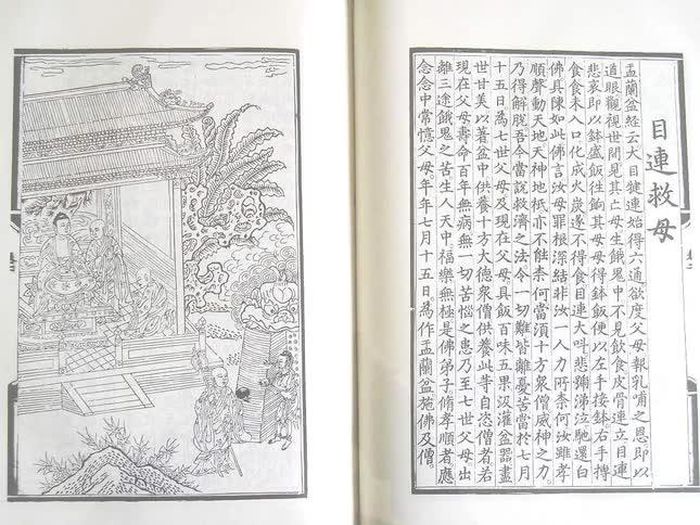 目連救母
盂蘭盆經云大目犍連始得六通欲度父母報乳哺之恩即以
道眼觀視世間見其亡母生餓鬼中不見飲食皮骨連立目連
悲哀即以鉢盛飯往餉其母母得鉢飯便以左手接鉢右手摶
食食未入口化成火炭遂不得食目連大叫悲號涕泣馳還白
佛具陳如此佛言汝母罪根深結非汝一人力所柰何汝雖孝
順聲動天地天神地祇亦不能柰何當須十方眾僧威神之力
乃得解脫吾今當說救濟之法令一切難皆離憂苦當於七月
十五日為七世父母及現在父母具飯百味五果汲灌盆器盡
世甘美以著盆中供養十方大德眾僧供養此等自恣僧者若
現在父母壽命百年無病無一切苦惱之患乃至七世父母出
離三途餓鬼之苦生人天中福樂無極是佛弟子脩孝順者應
念念中常憶父母年年七月十五日為作盂蘭盆施佛及僧